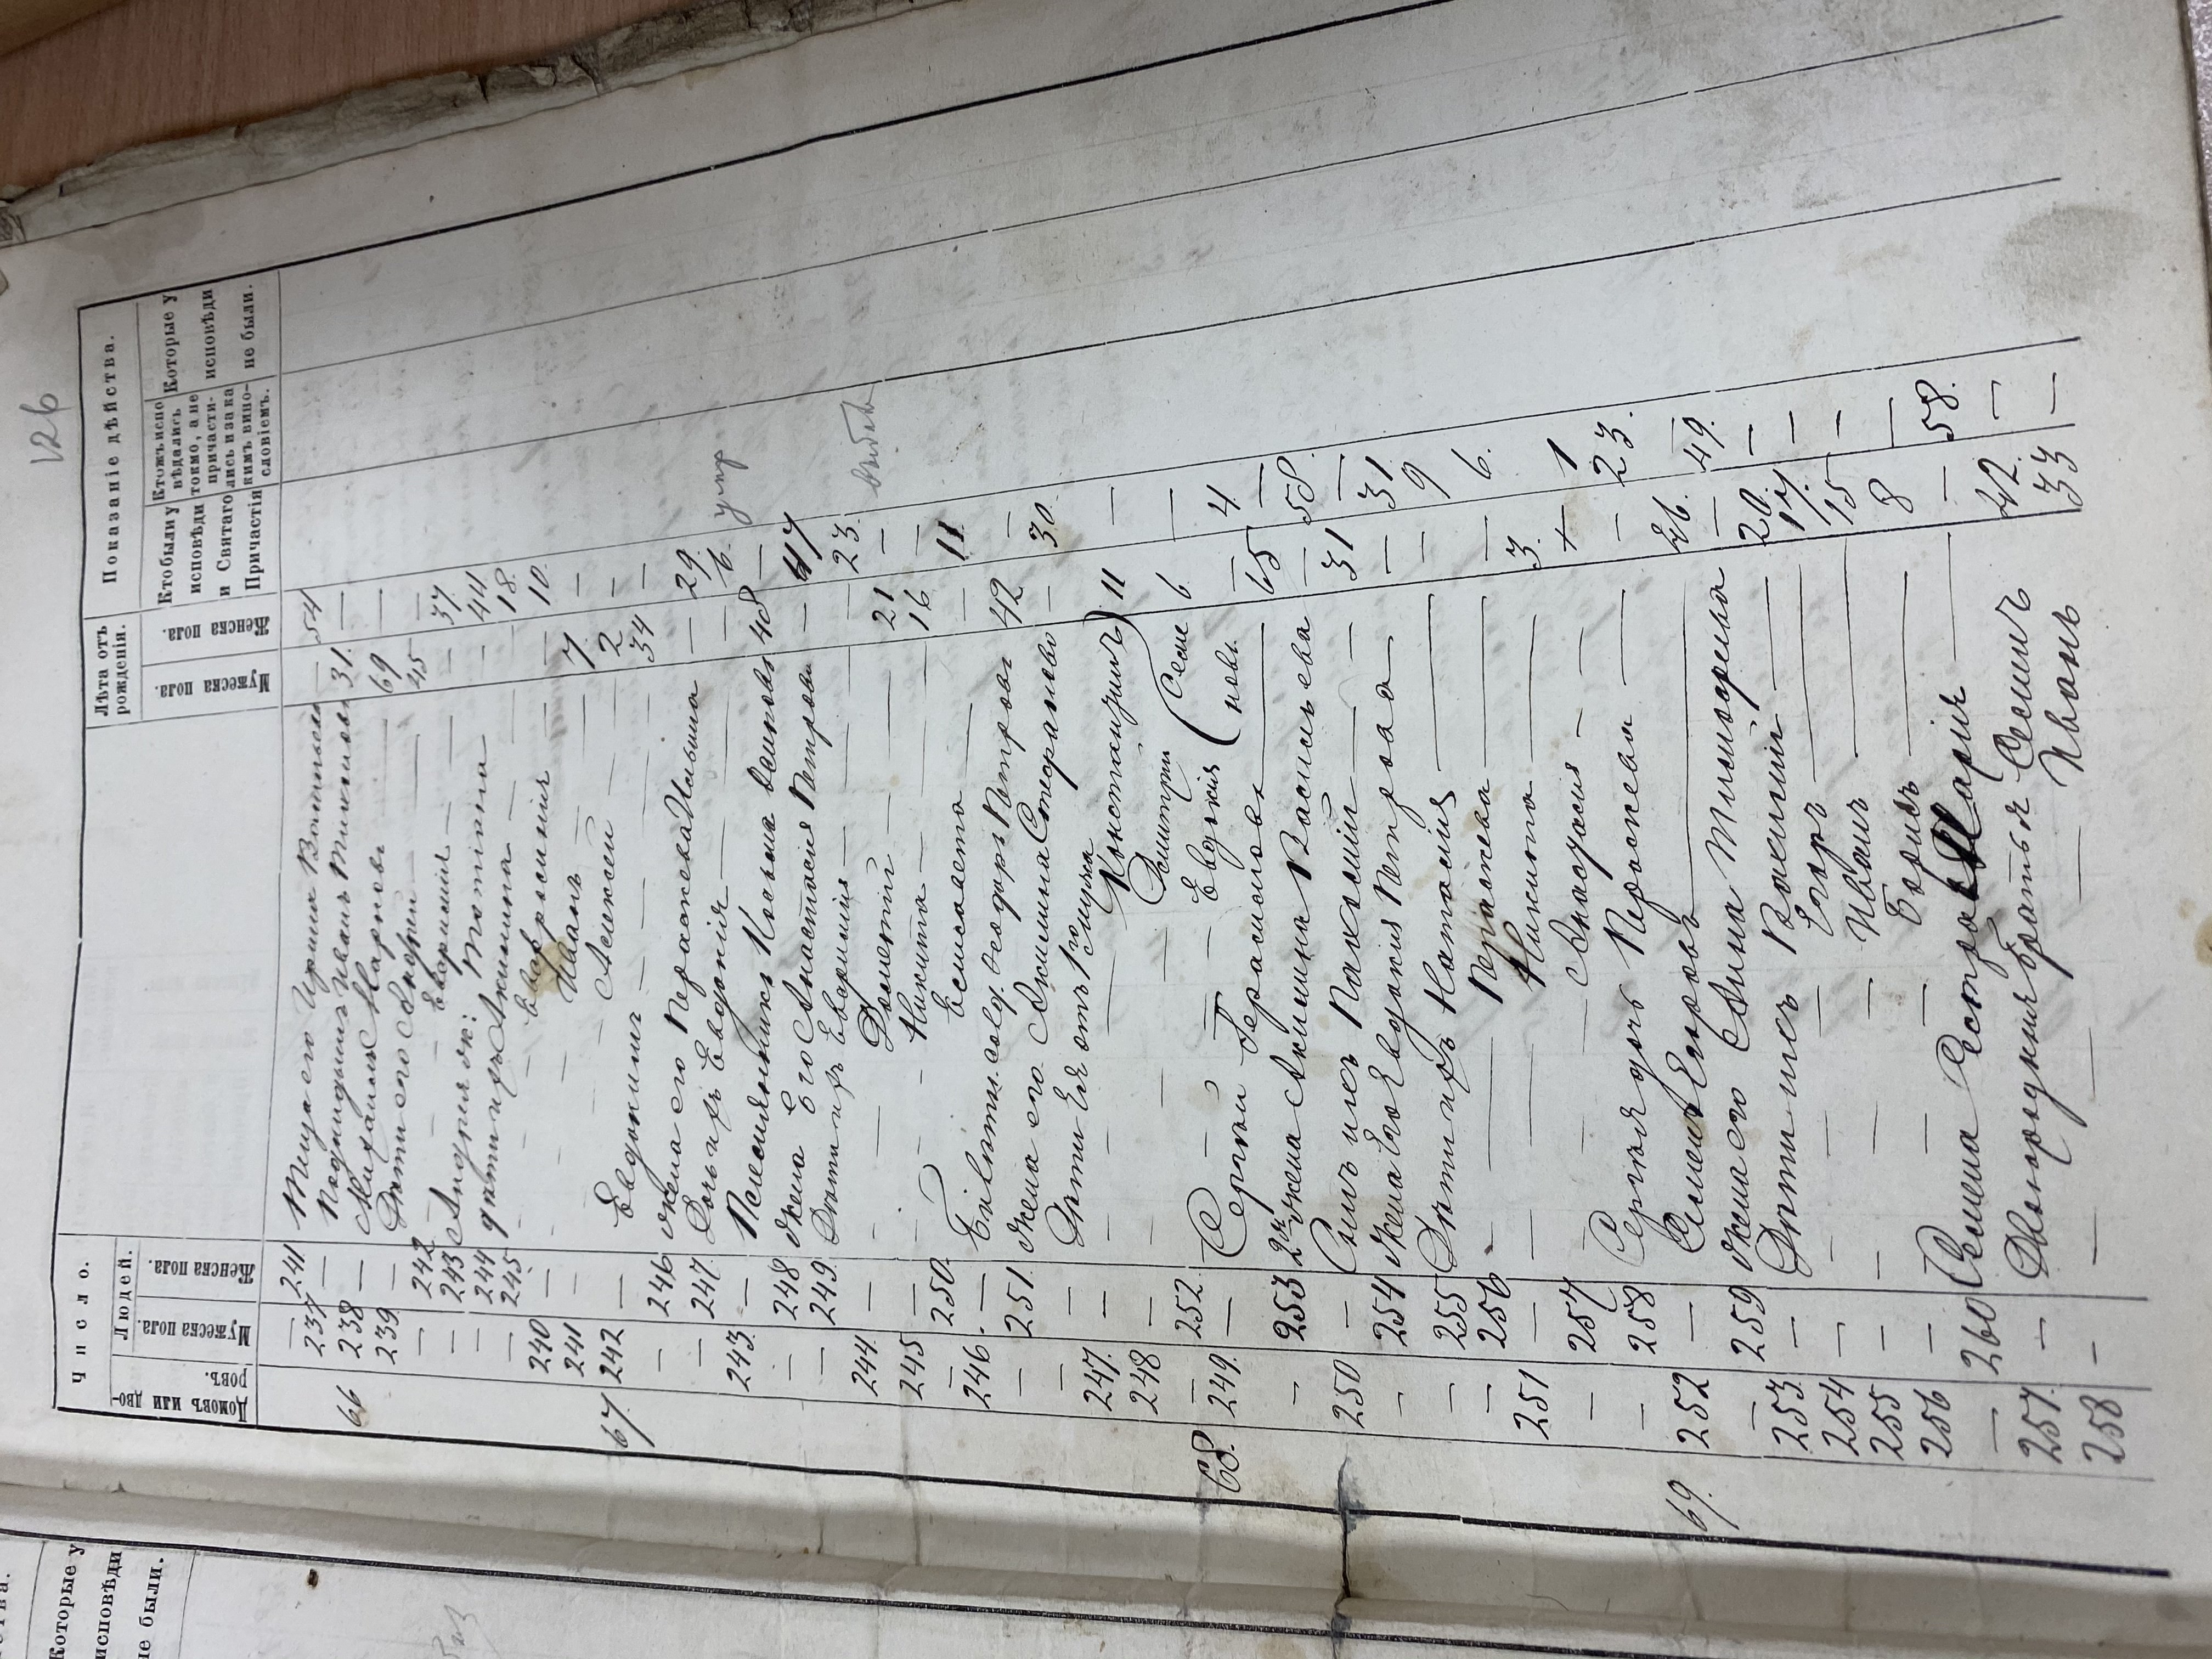 126
Число.
Домовъ или дворовъ.
Людей.
Мужеска пола.
Женска пола.
Лѣта отъ рожденія.
Мужеска пола.
Женска пола.
Показаніе дѣйства.
Кто были у исповѣди и Святаго Причастія
Кто жъ исповѣдались токмо, а не причастились и за какимъ винословіемъ.
Которые у исповѣди не были.
— 241 его Ирина 54
237 — Иванъ 31 —
66 238 — Михаилъ Марковъ 69 —
239 — Дѣти его Андрей 45 —
— 242 — Евфимія — 37
— 243 Андрея ж: Татіана — 44
— 244 дѣти ихъ Акилина — 18
— 245 — Евфросинія — 10
240 — — Иванъ 7 —
241 — — Алексѣй 2 —
67 242 — Евдокимъ — 34 —
— 246 жена его Параскева — 29
— 247 Дочь ихъ Евдокія — 6 умер
243 — Племянникъ Косьма 48 —
— 248 жена Его Анастасія Петрова — 47
— 249 Дѣти ихъ Евфимія — 23 выбыл
244 — Дометій 21 —
245 — Никита — 16 —
— 250 Елисавета — — 11
246 — солд. Ѳеодоръ Петровъ 42 —
— 251 жена его Акилина Стефанаева — 30
247 — Дѣти Ея отъ 1го мужа Константинъ 11 —
248 — — Димитрій 6 —
— 252 — Евдокія — 4
68 249 — Сергѣй Герасимовъ — 65 —
— 253 2я жена Акилина Васильева — 58
250 — Сынъ ихъ Пахомій — 31 —
— 254 жена Его Евдокія Петрова — — 31
— 255 Дѣти ихъ Наталія — — 9
— 256 — Параскева — — 6
251 — — Никита — 3 —
— 257 — Анастасія — + 1
— 258 Сергѣя дочь Параскева — — 23
69 252 — Семенъ Егоровъ — —
— 259 жена его Анна Тимоѳеева — 49
253 — Дѣти ихъ Василій — 20 —
254 — — Егоръ — 17 —
255 — — Иванъ — 15 —
256 — — Борисъ — 8 —
— 260 Семена сестра Марія — — 58
257 — Двоюродные братья Семенъ 42 —
258 — — Иванъ 33 —
Которые у исповѣди не были.